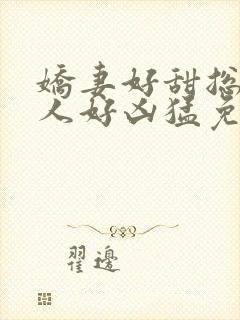 嬌妻好甜摠
人好凶猛免
翟邊